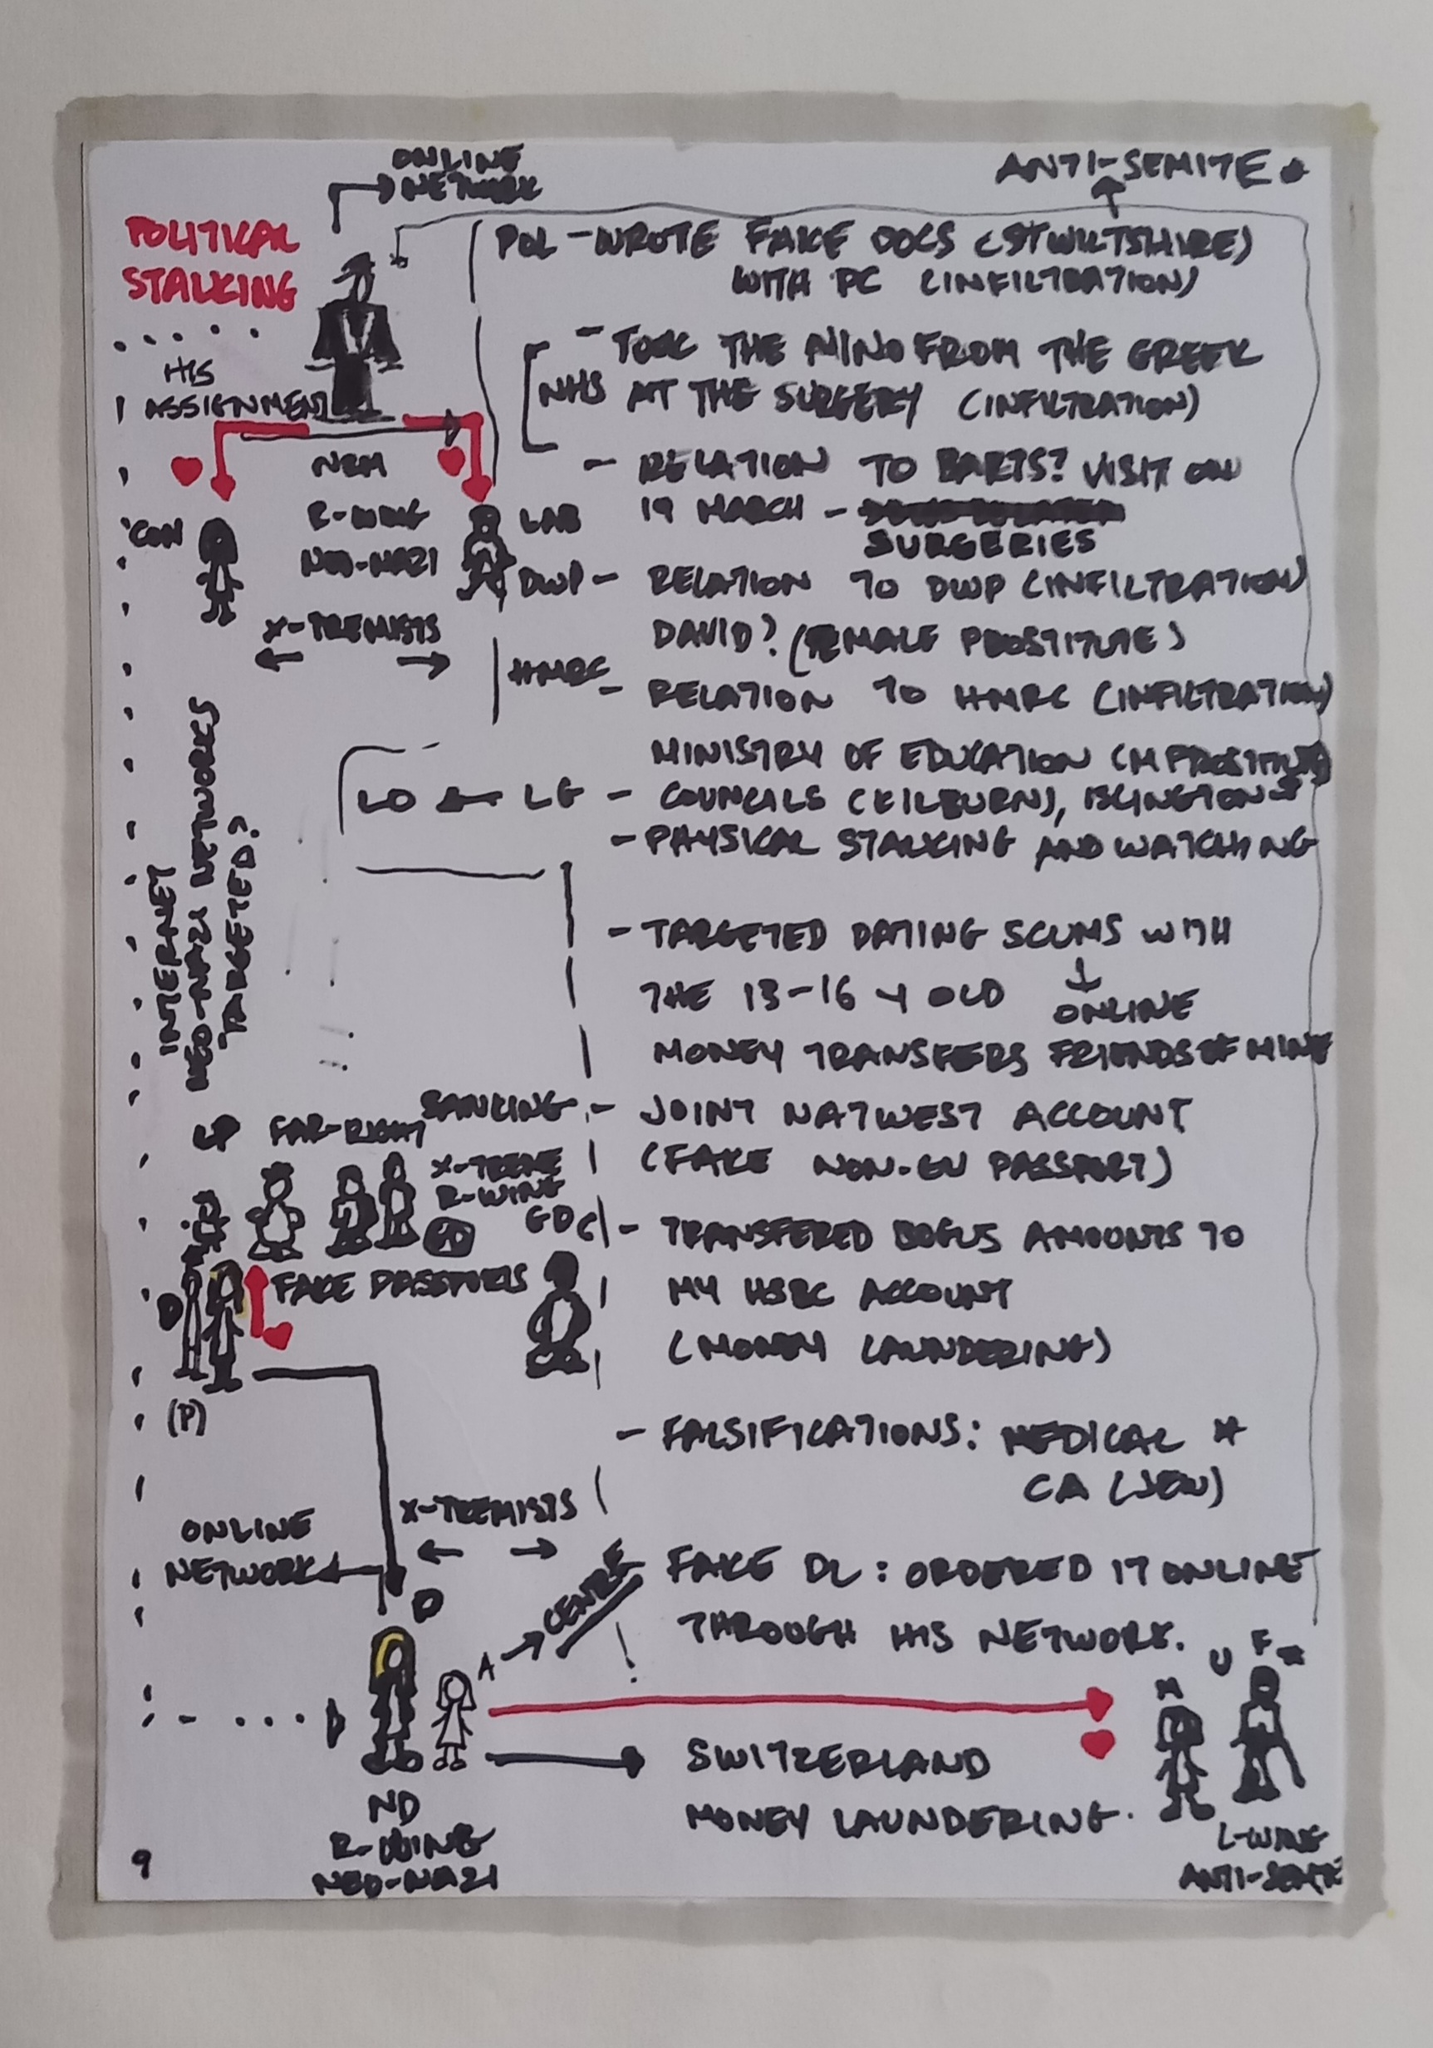 ONLINE
NETWORK
ANTI-SEMITE *
POLITICAL
STALKING
POL - WROTE FAKE DOCS (ST WILTSHIRE)
WITH PC (INFILTRATION)
HIS
ASSIGNMENT
- TOOK THE NINO FROM THE GREEK
NHS AT THE SURGERY (INFILTRATION)
NRM
R-WING
NEO-NAZI
CON
LAB
- RELATION TO BARTS? VISIT ON
19 MARCH -
SURGERIES
DWP - RELATION TO DWP (INFILTRATION)
DAVID? (FEMALE PROSTITUTE)
X-TREMISTS
HMRC - RELATION TO HMRC (INFILTRATION)
MINISTRY OF EDUCATION (M PROSTITUTE)
LO LG - COUNCILS (KILBURN), ISLINGTON
- PHYSICAL STALKING AND WATCHING
INTERNET
NEO-NAZI NETWORKS
TARGETED?
- TARGETED DATING SCUMS WITH
THE 13-16 Y OLD
ONLINE
MONEY TRANSFERS FRIENDS OF MINE
LP FAR-RIGHT
BANKING - JOINT NATWEST ACCOUNT
(FAKE NON-EU PASSPORT)
X-TREME
R-WING
GDC - TRANSFERED BOGUS AMOUNTS TO
MY HSBC ACCOUNT
(MONEY LAUNDERING)
FAKE PASSPORTS
D
(P)
- FALSIFICATIONS: MEDICAL *
CA (JEW)
X-TREMISTS
ONLINE
NETWORK
D
A
CENTRE
FAKE DL: ORDERED IT ONLINE
THROUGH HIS NETWORK.
M U F *
SWITZERLAND
MONEY LAUNDERING.
ND
R-WING
NEO-NAZI
L-WING
ANTI-SEMITE
9